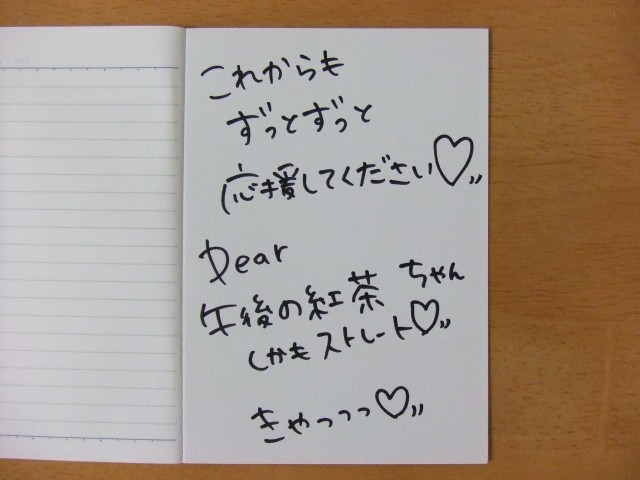 これからも
ずっとずっと
応援してください♡〃
Dear
午後の紅茶 ちゃん
しかもストレート♡〃
きゃっっっ♡〃